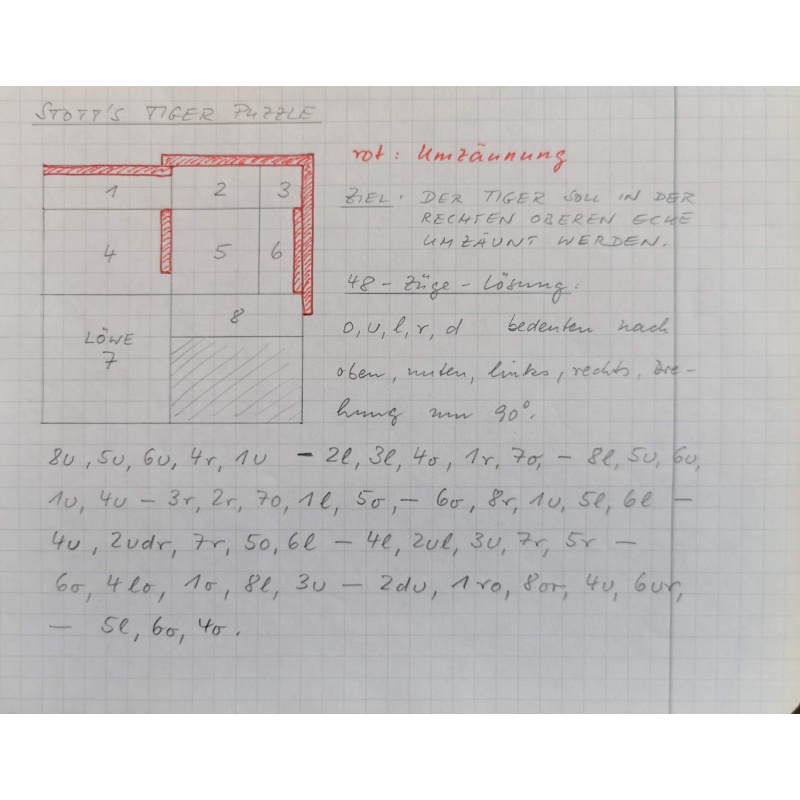 STOTT'S TIGER PUZZLE
rot: Umzäunung
1 2 3
ZIEL: DER TIGER SOLL IN DER
RECHTEN OBEREN ECKE
UMZÄUNT WERDEN.
4 5 6
48-Züge-Lösung:
8
o, u, l, r, d bedeuten nach
LÖWE
7
oben, unten, links, rechts, Dre-
hung um 90°.
8u, 5u, 6u, 4r, 1u - 2l, 3l, 4o, 1r, 7o, - 8l, 5u, 6u,
1u, 4u - 3r, 2r, 7o, 1l, 5o, - 6o, 8r, 1u, 5l, 6l -
4u, 2udr, 7r, 5o, 6l - 4l, 2ul, 3u, 7r, 5r -
6o, 4lo, 1o, 8l, 3u - 2du, 1ro, 8or, 4u, 6ur,
- 5l, 6o, 4o.